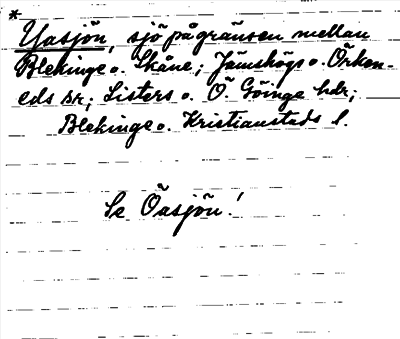 *
Yasjön, sjö på gränsen mellan
Blekinge o. Skåne; Jämshögs o. Örken-
eds sr; Listers o. Ö Göinge hdr;
Blekinge o. Kristianstads l.
Se Öasjön!